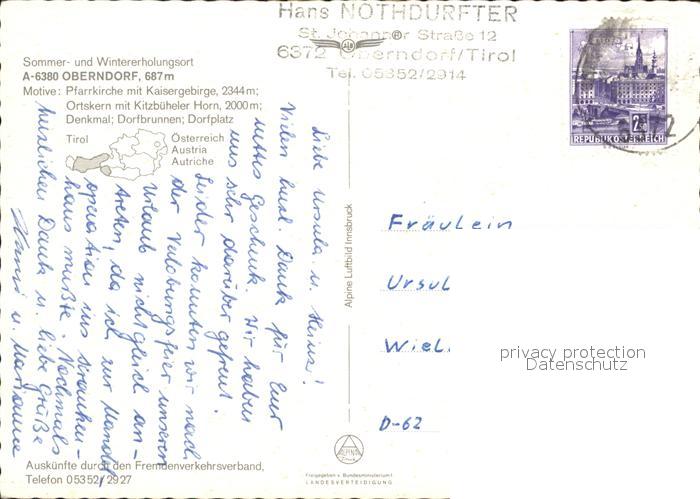 Hans NOTHDURFTER
St. Johanner Straße 12
6372 Oberndorf/Tirol
Tel. 05352/2914
Sommer- und Wintererholungsort
A-6380 OBERNDORF, 687m
Motive: Pfarrkirche mit Kaisergebirge, 2344m;
Ortskern mit Kitzbüheler Horn, 2000m;
Denkmal; Dorfbrunnen; Dorfplatz
Tirol
Österreich
Austria
Autriche
2S
REPUBLIK ÖSTERREICH
Liebe Ursula u. Heinz!
Vielen herzl. Dank für Euer
nettes Geschenk. Wir haben
uns sehr darüber gefreut.
Leider konnten wir nach
der Verlobungsfeier unseren
Urlaub nicht gleich an-
treten, da ich zur Mandel
operation ins Kranken-
haus mußte. Nochmals
herzlichen Dank u. liebe Grüße
Hansi u. Marianne
Alpine Luftbild Innsbruck
Fräulein
Ursul
Wiel.
D-62
privacy protection
Datenschutz
ALPINE
Auskünfte durch den Fremdenverkehrsverband,
Telefon 05352/2927
Freigegeben v. Bundesministerium f.
LANDESVERTEIDIGUNG